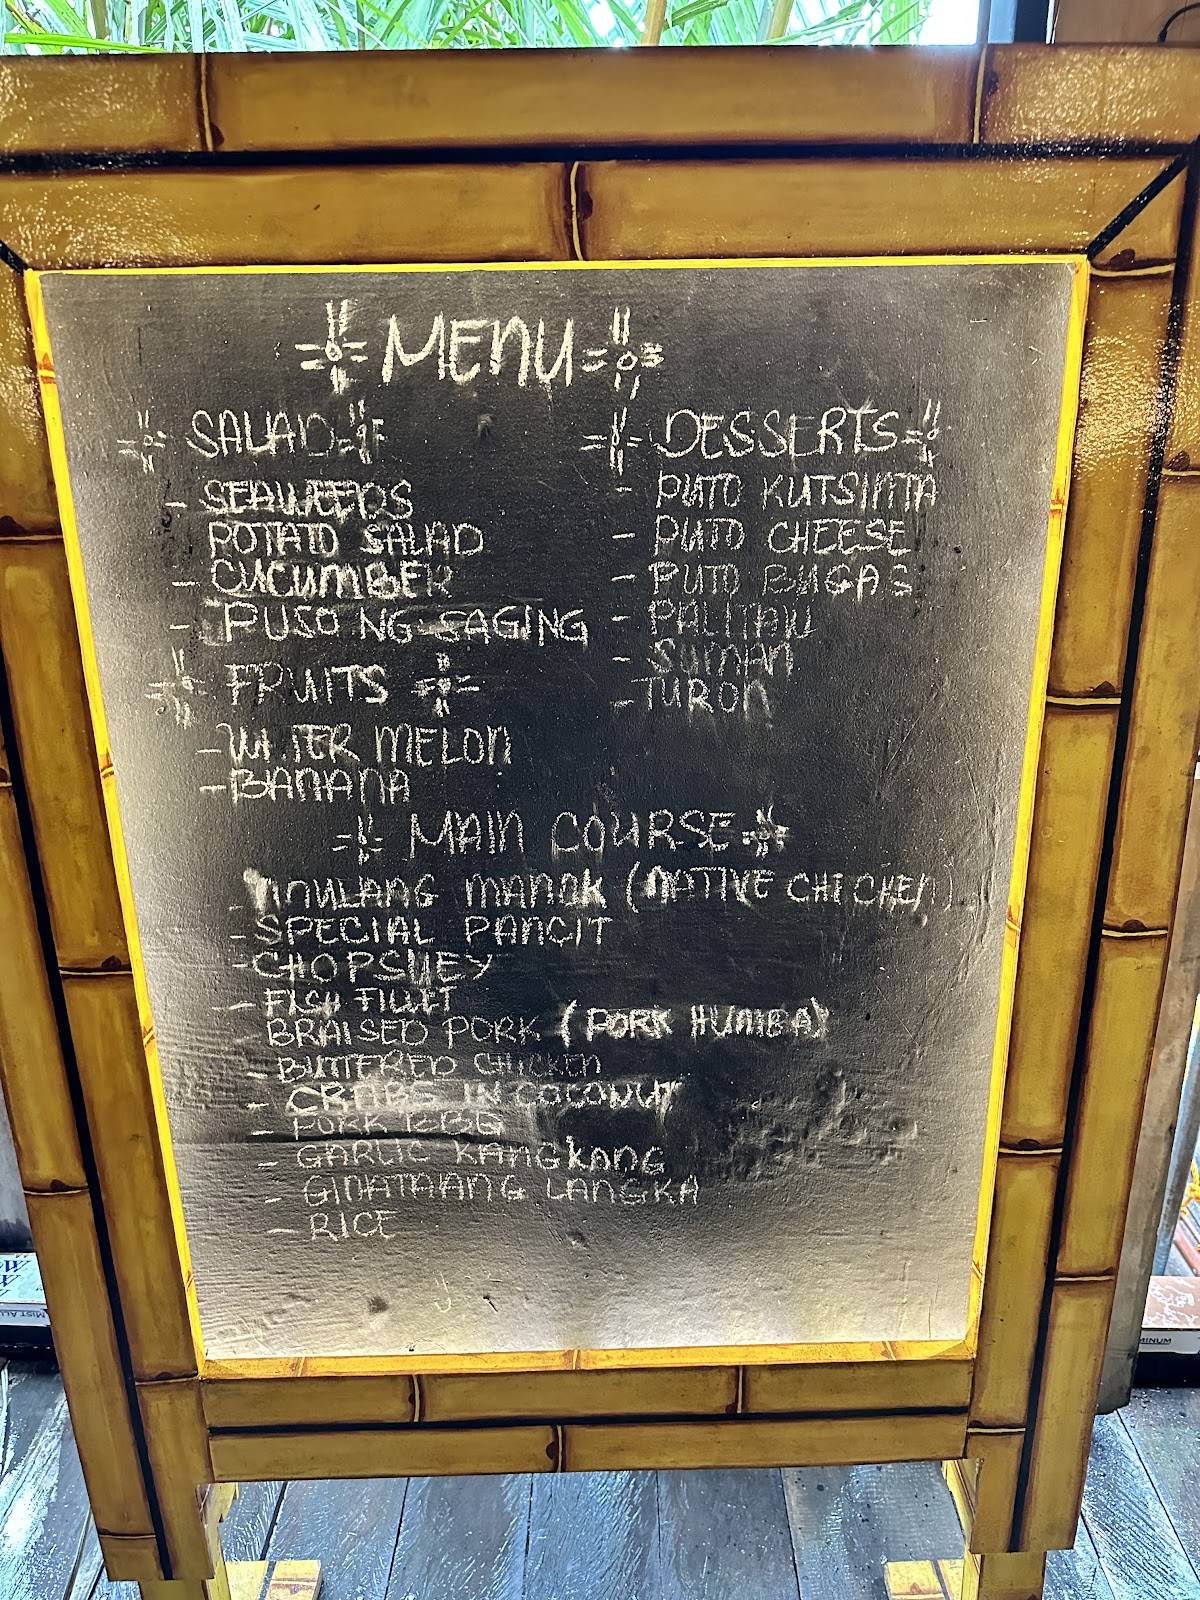 MENU
SALAD
- SEAWEEDS
POTATO SALAD
- CUCUMBER
- PUSO NG SAGING
FRUITS
- WATER MELON
- BANANA
DESSERTS
- PUTO KUTSINTA
- PUTO CHEESE
- PUTO BUGAS
- PALITAW
- SUMAN
- TURON
MAIN COURSE
- TINULANG MANOK (NATIVE CHICKEN)
- SPECIAL PANCIT
- CHOPSUEY
- FISH FILLET
BRAISED PORK (PORK HUMBA)
- BUTTERED CHICKEN
- CRABS IN COCONUT
- PORK BBG
- GARLIC KANGKONG
- GINATAANG LANGKA
- RICE
MINUM